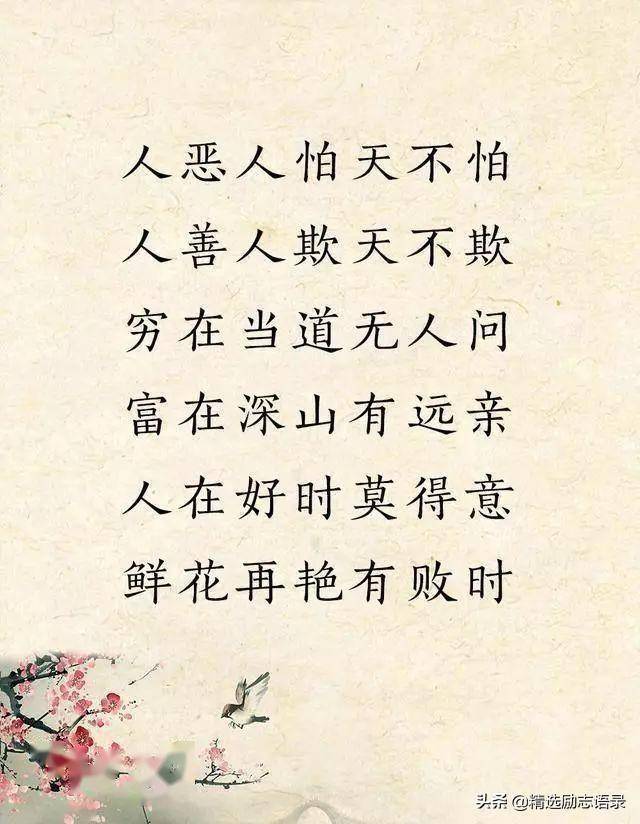 人恶人怕天不怕
人善人欺天不欺
穷在当道无人问
富在深山有远亲
人在好时莫得意
鲜花再艳有败时
头条 @精选励志语录